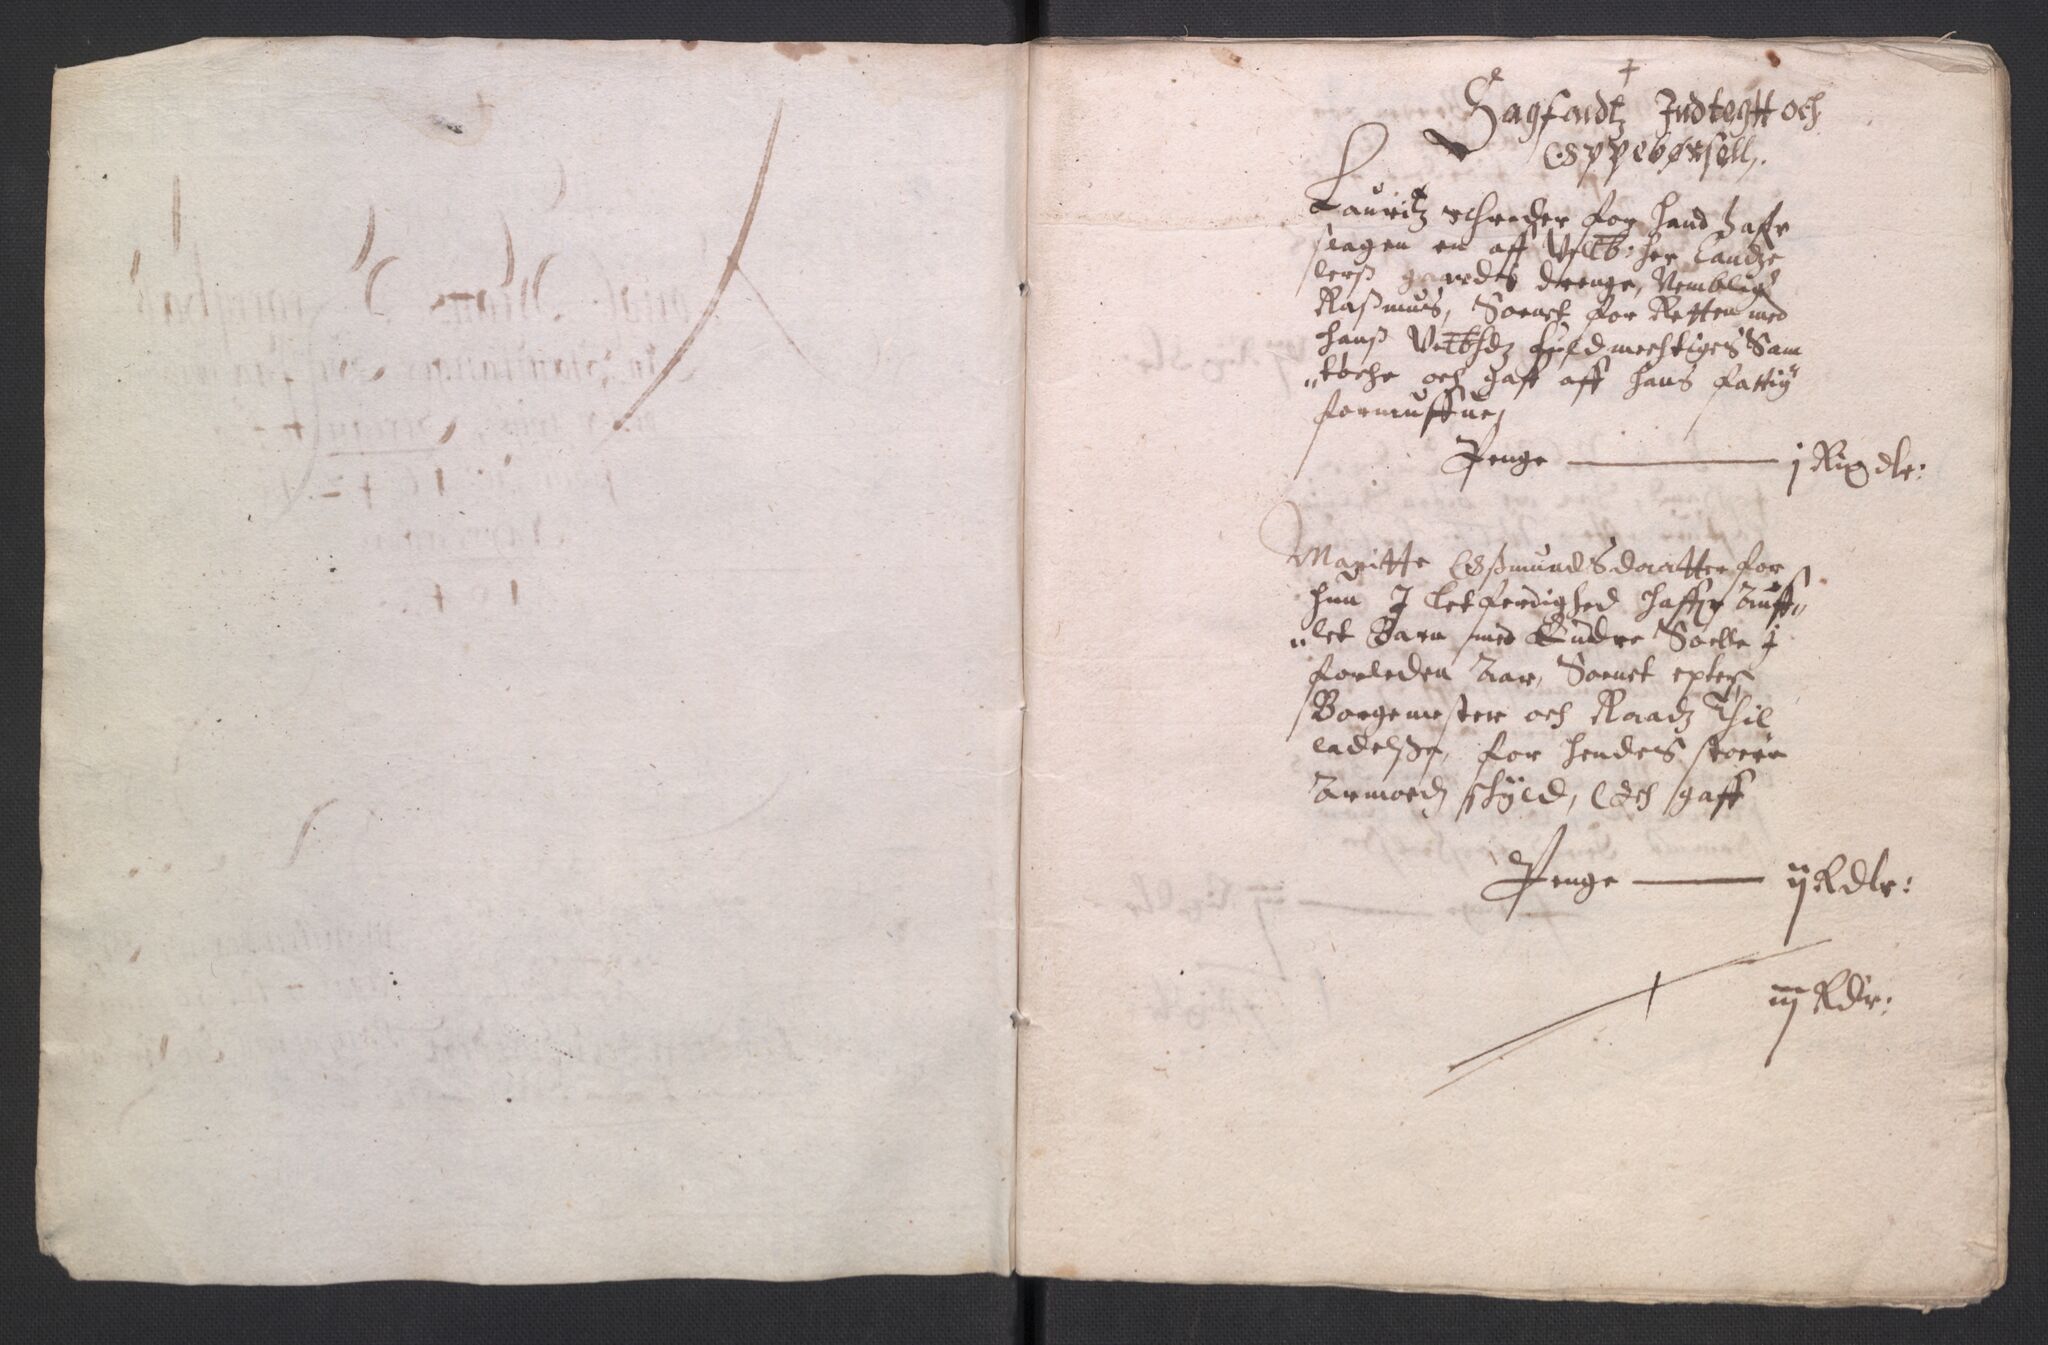 Sagfaldtz Indtegtt och
Oppebørsell.
Lauritz schreder for hand haffr
slagen en aff Velb: her Candze
lerß gaardtz drenge, Nemblig
Raßmus, Soenet for Retten med
hanß Velbhdz fuldmechtiges Sam
"tøche och gaff aff hans fattig
formuffue,
Penge — j Rix dlr:
Maritte Oßmundsdaatter for
hun I letferdighed haffr auff„
„let Barn med Endre Solle I
forleden Aar, Soenet epter
Borgemester och Raadz Thil
ladelße, for hendes stoere
Armoedz skyld, Och gaff
Penge — ij Rdlr:
iij Rdlr: